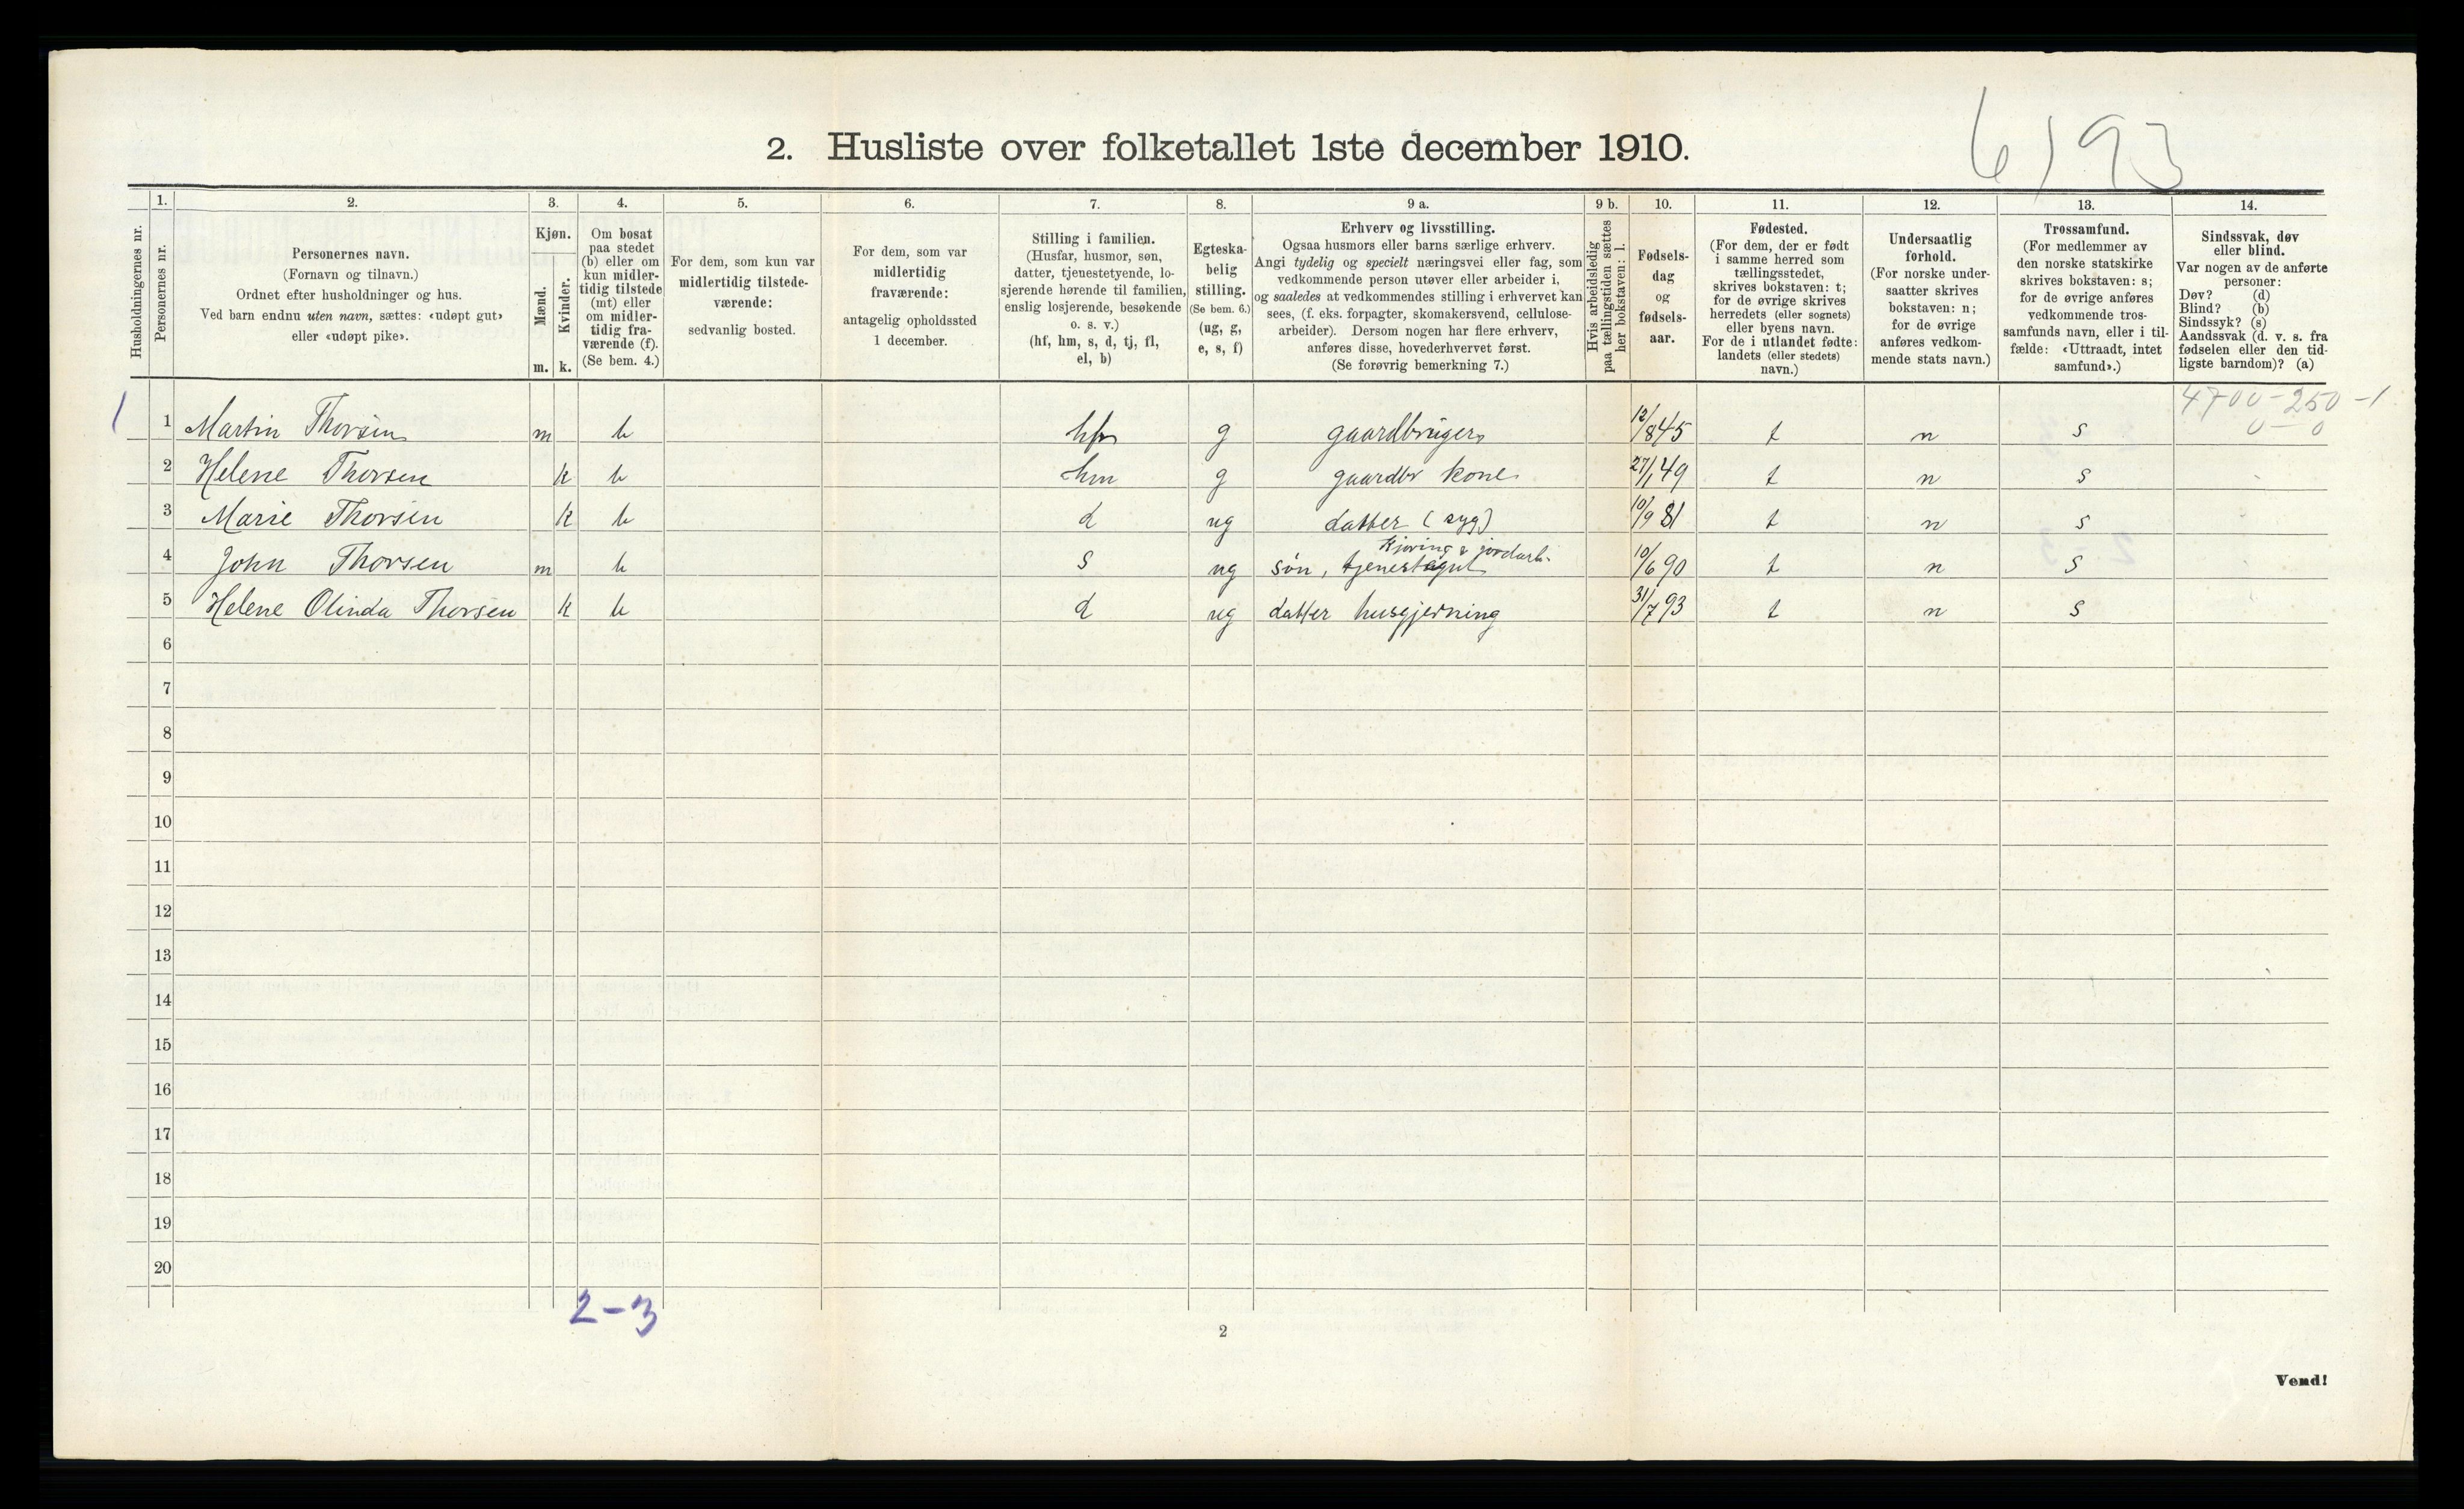 6193
2. Husliste over folketallet 1ste december 1910.
Husholdningernes nr.
1.
Personernes nr.
2.
Personernes navn.
(Fornavn og tilnavn.)
Ordnet efter husholdninger og hus.
Ved barn endnu uten navn, sættes: «udøpt gut»
eller «udøpt pike».
3.
Kjøn.
Mænd.
Kvinder.
m. k.
4.
Om bosat
paa stedet
(b) eller om
kun midler-
tidig tilstede
(mt) eller
om midler-
tidig fra-
værende (f).
(Se bem. 4.)
5.
For dem, som kun var
midlertidig tilstede-
værende:
sedvanlig bosted.
6.
For dem, som var
midlertidig
fraværende:
antagelig opholdssted
1 december.
7.
Stilling i familien.
(Husfar, husmor, søn,
datter, tjenestetyende, lo-
sjerende hørende til familien,
enslig losjerende, besøkende
o. s. v.)
(hf, hm, s, d, tj, fl,
el, b)
8.
Egteska-
belig
stilling.
(Se bem. 6.)
(ug, g,
e, s, f)
9 a.
Erhverv og livsstilling.
Ogsaa husmors eller barns særlige erhverv.
Angi tydelig og specielt næringsvei eller fag, som
vedkommende person utøver eller arbeider i,
og saaledes at vedkommendes stilling i erhvervet kan
sees, (f. eks. forpagter, skomakersvend, cellulose-
arbeider). Dersom nogen har flere erhverv,
anføres disse, hovederhvervet først.
(Se forøvrig bemerkning 7.)
9 b.
Hvis arbeidsledig
paa tællingstiden sættes
her bokstaven: l.
10.
Fødsels-
dag
og
fødsels-
aar.
11.
Fødested.
(For dem, der er født
i samme herred som
tællingsstedet,
skrives bokstaven: t;
for de øvrige skrives
herredets (eller sognets)
eller byens navn.
For de i utlandet fødte:
landets (eller stedets)
navn.)
12.
Undersaatlig
forhold.
(For norske under-
saatter skrives
bokstaven: n;
for de øvrige
anføres vedkom-
mende stats navn.)
13.
Trossamfund.
(For medlemmer av
den norske statskirke
skrives bokstaven: s;
for de øvrige anføres
vedkommende tros-
samfunds navn, eller i til-
fælde: «Uttraadt, intet
samfund».)
14.
Sindssvak, døv
eller blind.
Var nogen av de anførte
personer:
Døv? (d)
Blind? (b)
Sindssyk? (s)
Aandssvak (d. v. s. fra
fødselen eller den tid-
ligste barndom)? (a)
4700-250-1
0-0
1 1 Martin Thorsen m b hf g gaardbruger 12/8 45 t n s
2 Helene Thorsen k b hm g gaardbr kone 27/1 49 t n s
3 Marie Thorsen k b d ug datter (syg) 10/9 81 t n s
4 John Thorsen m b s ug søn, tjenestegut Kjøring & jordarb. 10/6 90 t n s
5 Helene Olinda Thorsen k b d ug datter husgjerning 31/7 93 t n s
6
7
8
9
10
11
12
13
14
15
16
17
18
19
20
2-3
2
Vend!